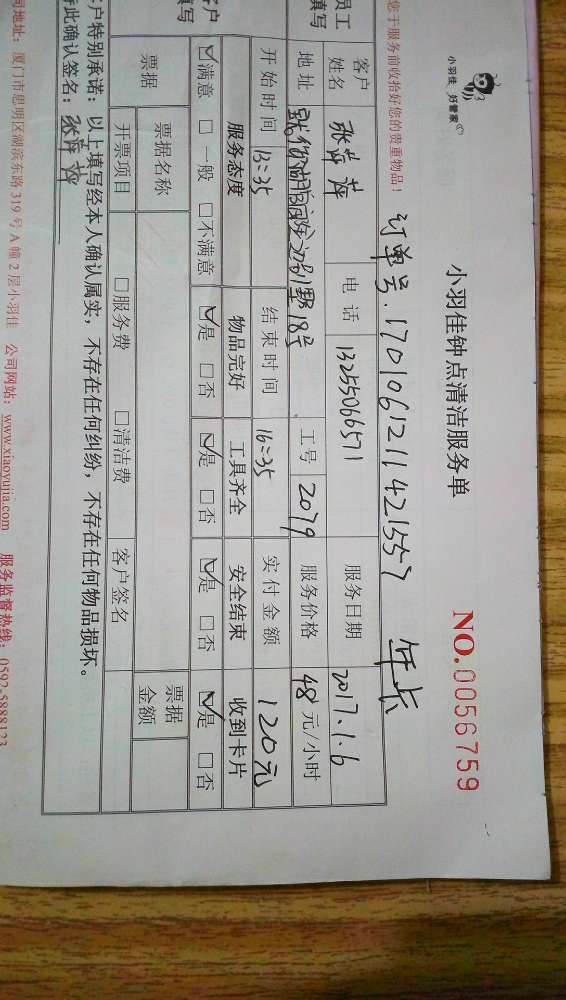 小羽佳 好管家
小羽佳钟点清洁服务单
NO.0056759
您于服务前收拾好您的贵重物品!
订单号.1701061211421557 年卡
员工
填写
客户姓名 张萍萍 电话 13255066571 服务日期 2017.1.6
地址 别墅18号 工号 2079 服务价格 48元/小时
开始时间 13:35 结束时间 16:35 实付金额 120元
客户
填写
服务态度 物品完好 工具齐全 安全结束 收到卡片
☑满意 □一般 □不满意 ☑是 □否 ☑是 □否 ☑是 □否 ☑是 □否
票据 票据名称 票据金额
开票项目 □服务费 □清洁费 客户签名
客户特别承诺:以上填写经本人确认属实,不存在任何纠纷,不存在任何物品损坏。
特此确认签名:张萍萍
司地址:厦门市思明区湖滨东路319号A幢2层小羽佳 公司网站:www.xiaoyujia.com 服务监督热线:0592-5888123